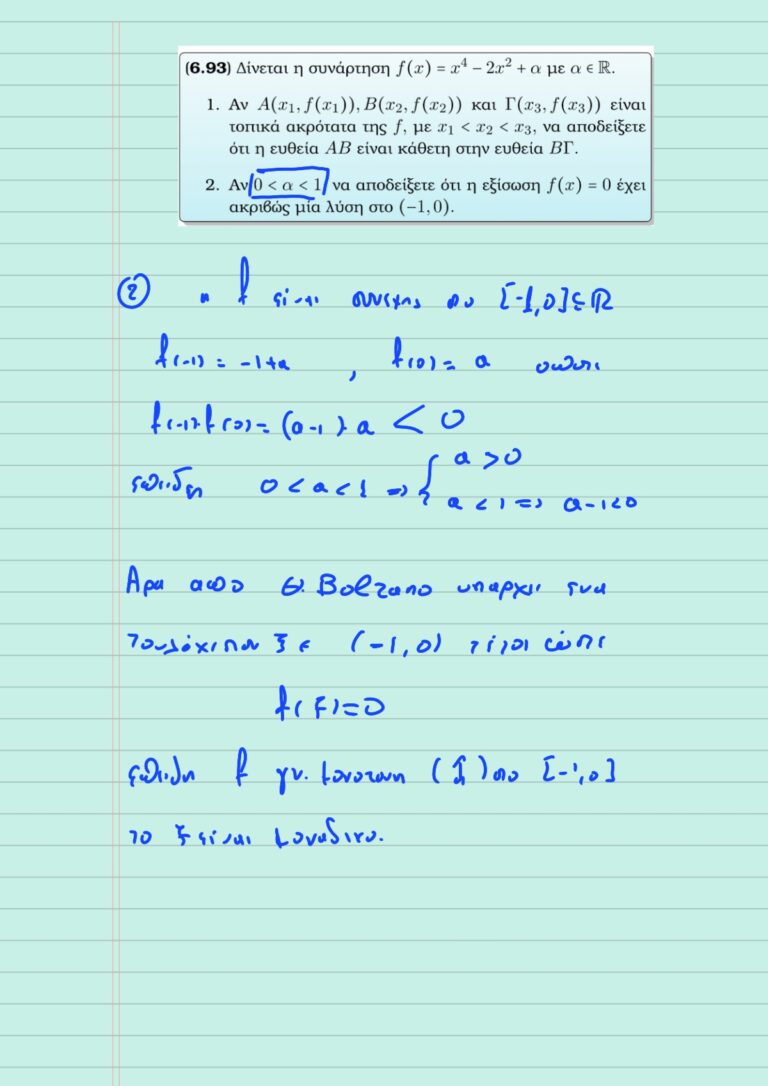 (6.93) Δίνεται η συνάρτηση f(x) = x⁴ − 2x² + α με α ∈ ℝ.
1. Αν A(x₁, f(x₁)), B(x₂, f(x₂)) και Γ(x₃, f(x₃)) είναι
τοπικά ακρότατα της f, με x₁ < x₂ < x₃, να αποδείξετε
ότι η ευθεία AB είναι κάθετη στην ευθεία BΓ.
2. Αν 0 < α < 1 να αποδείξετε ότι η εξίσωση f(x) = 0 έχει
ακριβώς μία λύση στο (−1, 0).
② η f είναι συνεχης στο [-1,0]⊆ℝ
f(-1) = -1+a , f(0) = a οποτε
f(-1)f(0) = (a-1)a < 0
επειδη 0 < a < 1 ⇒ { a > 0
a < 1 ⇒ a-1<0
Αρα απο Θ. Bolzano υπαρχει ενα
τουλάχιστον ξ ∈ (-1,0) τέτοι ώστε
f(ξ)=0
επειδη f γν. μονοτονη (↑) στο [-1,0]
το ξ είναι μοναδικο.